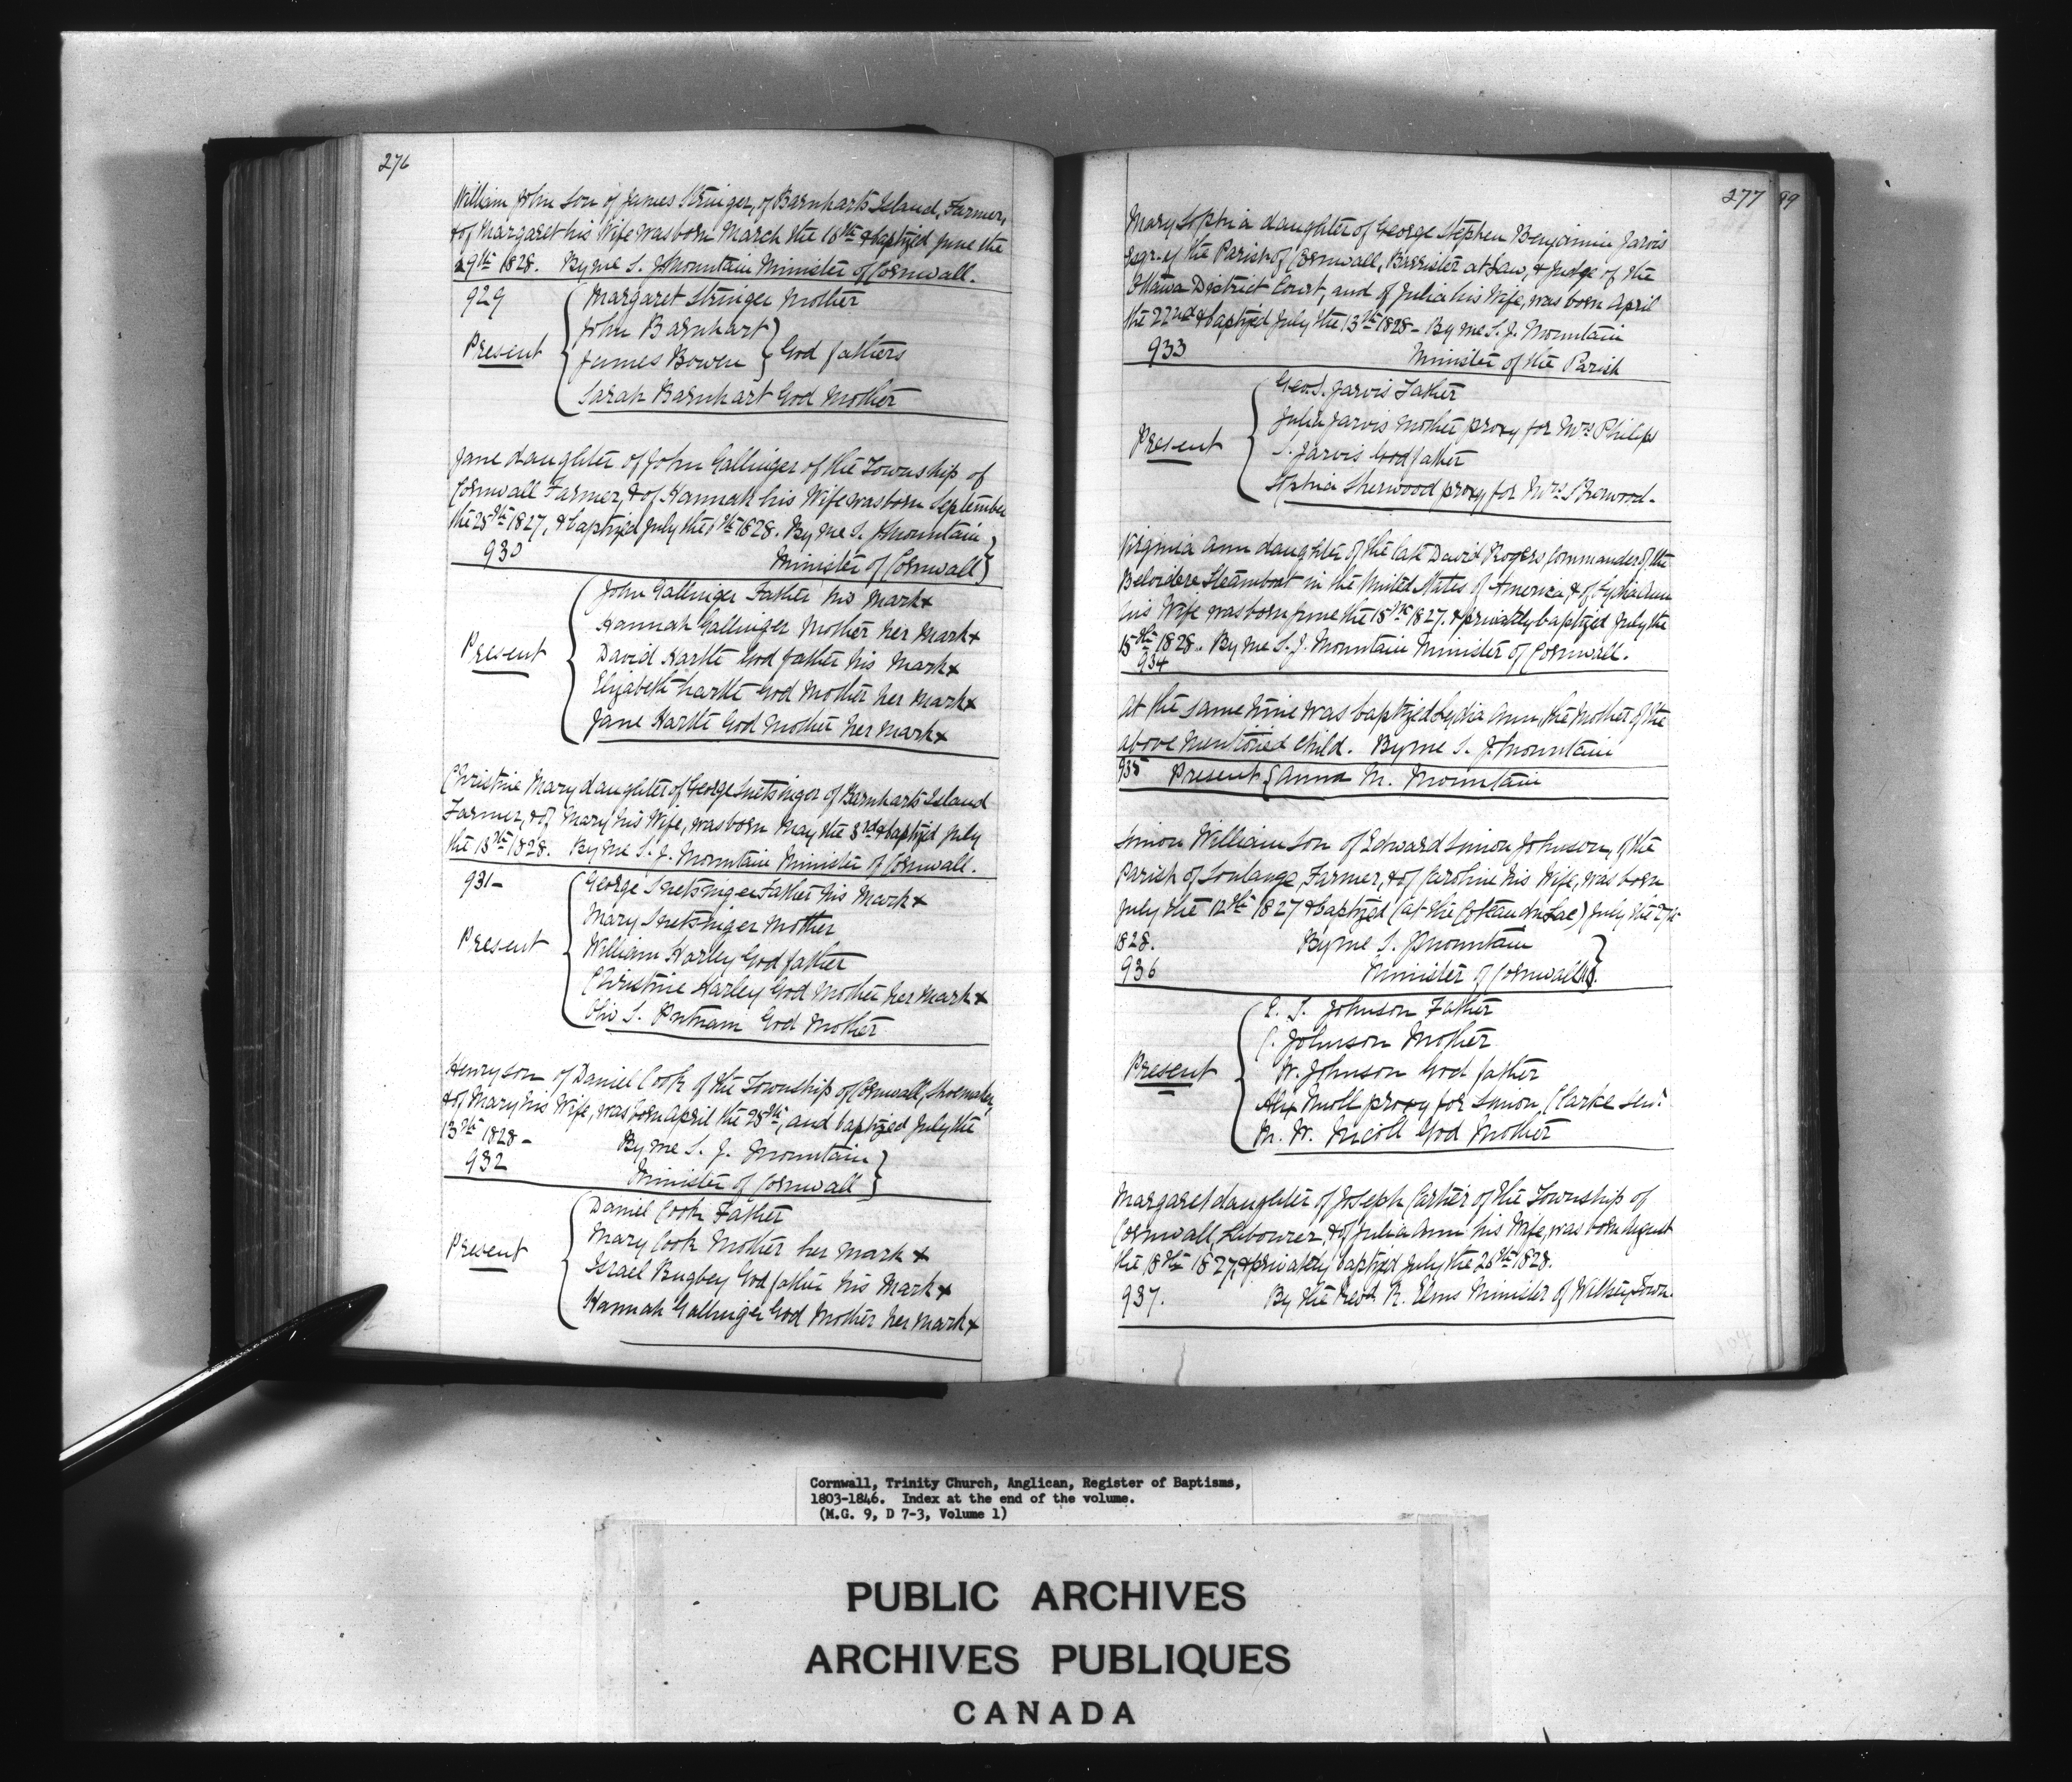 276
William John Son of James Stringer, of Barnharts Island, Farmer,
& of Margaret his Wife was born March the 16th & baptized June the
29th 1828. By me S. J. Mountain Minister of Cornwall.
929
Present
Margaret Stringer Mother
John Barnhart
James Bowen } God fathers
Sarah Barnhart God Mother
Jane daughter of John Gallinger of the Township of
Cornwall Farmer, & of Hannah his Wife was born September
the 25th 1827, & baptized July the 1828. By me S. J. Mountain
930 Minister of Cornwall
Present
John Gallinger Father his mark x
Hannah Gallinger Mother her mark x
David Hartle God father his mark x
Elizabeth Hartle God Mother her mark x
Jane Hartle God Mother her mark x
Christine Mary daughter of George Snetsinger of Barnharts Island
Farmer, & of Mary his Wife, was born May the 3rd & baptized July
the 13th 1828. By me S. J. Mountain Minister of Cornwall.
931-
Present
George Snetsinger Father his Mark x
Mary Snetsinger Mother
William Harley God father
Christine Harley God Mother her mark x
S. Putnam God Mother
Henry son of Daniel Cook of the Township of Cornwall, Shoemaker,
& of Mary his Wife, was born April the 28th, and baptized July the
13th 1828- By me S. J. Mountain
932 Minister of Cornwall
Present
Daniel Cook Father
Mary Cook Mother her mark x
Israel Bugbey God father his Mark x
Hannah Gallinger God Mother her mark x
277 99
Mary Sophia daughter of George Stephen Benjamin Jarvis
Esqr. of the Parish of Cornwall, Barrister at Law, & Judge of the
Ottawa District Court, and of Julia his Wife, was born April
the 22nd & baptized July the 13th 1828- By me S. J. Mountain
933 Minister of the Parish
Present
Geo. S. Jarvis Father
Julia Jarvis Mother proxy for Mrs Philips
S. Jarvis God father
Sophia Sherwood proxy for Mrs Sherwood-
Virginia Ann daughter of the late David Rogers Commander of the
Belvidere Steamboat in the United States of America, & of Lydia Ann
his Wife was born June the 15th 1827. & privately baptized July the
15th 1828. By me S. J. Mountain Minister of Cornwall.
934
At the same time was baptized Lydia Ann, the Mother of the
above mentioned child. By me S. J. Mountain
935 Present { Anna M. Mountain
Simon William Son of Edward Simon Johnson, of the
Parish of Soulange, Farmer, & of Caroline his Wife, was born
July the 12th 1827 & baptized (at the Coteau du Lac) July the
1828. By me S. J. Mountain
936 Minister of Cornwall.
Present
E. S. Johnson Father
C. Johnson Mother
W. Johnson God father
Alex Nicoll proxy for Simon Clarke Senr
M. W. Nicoll God Mother
Margaret daughter of Joseph Cartier of the Township of
Cornwall, Labourer, & of Julia Ann his Wife, was born August
the 18th 1827, & privately baptized July the 26th 1828.
937. By the Revd R. Elms Minister of Williamstown.
Cornwall, Trinity Church, Anglican, Register of Baptisms,
1803-1846. Index at the end of the volume.
(M.G. 9, D 7-3, Volume 1)
PUBLIC ARCHIVES
ARCHIVES PUBLIQUES
CANADA